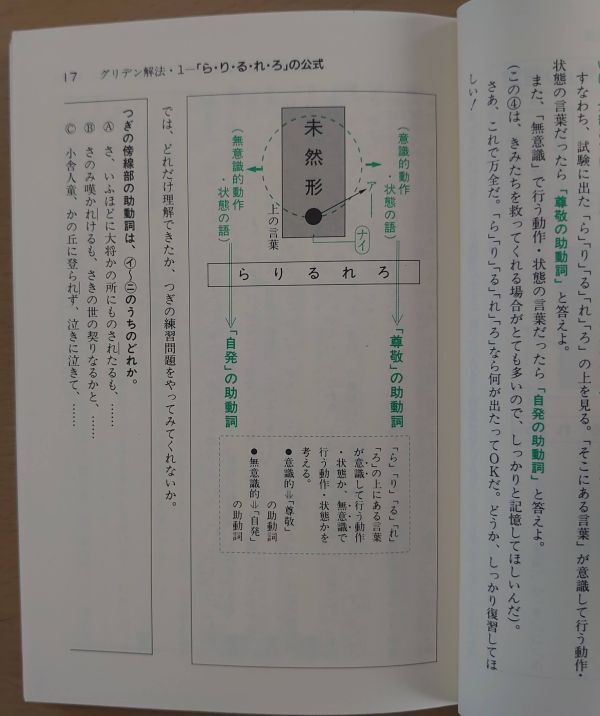 すなわち、試験に出た「ら」「り」「る」「れ」「ろ」の上を見る。「そこにある言葉」が意識して行う動作・
状態の言葉だったら「尊敬の助動詞」と答えよ。
また、「無意識」で行う動作・状態の言葉だったら「自発の助動詞」と答えよ。
(この④は、きみたちを救ってくれる場合がとても多いので、しっかりと記憶してほしいんだ)。
さあ、これで万全だ。「ら」「り」「る」「れ」「ろ」なら何が出たってOKだ。どうか、しっかり復習してほ
しい!
17 グリデン解法・1―「ら・り・る・れ・ろ」の公式
(意識的動作
・状態の語)
ア
ナイ
未然形
上の言葉
(無意識的動作
・状態の語)
らりるれろ
「尊敬」の助動詞
「自発」の助動詞
「ら」「り」「る」「れ」
「ろ」の上にある言葉
が意識して行う動作
・状態か、無意識で
行う動作・状態かを
考える。
●意識的⇨「尊敬」
の助動詞
●無意識的⇨「自発」
の助動詞
では、どれだけ理解できたか、つぎの練習問題をやってみてくれないか。
つぎの傍線部の助動詞は、㋑~㋥のうちのどれか。
Ⓐ さ、いふほどに大将かの所にものされたるも、……
Ⓑ さのみ嘆かれけるも、さきの世の契りなるかと、……
Ⓒ 小舎人童、かの丘に登られず、泣きに泣きて、……